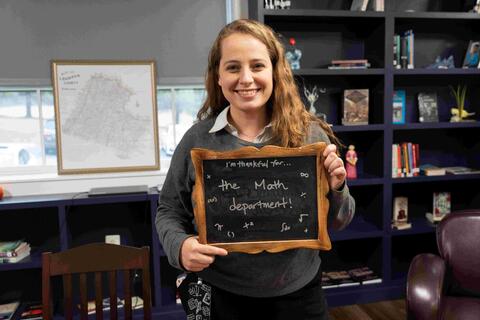 I'm thankful for...
the Math
department!